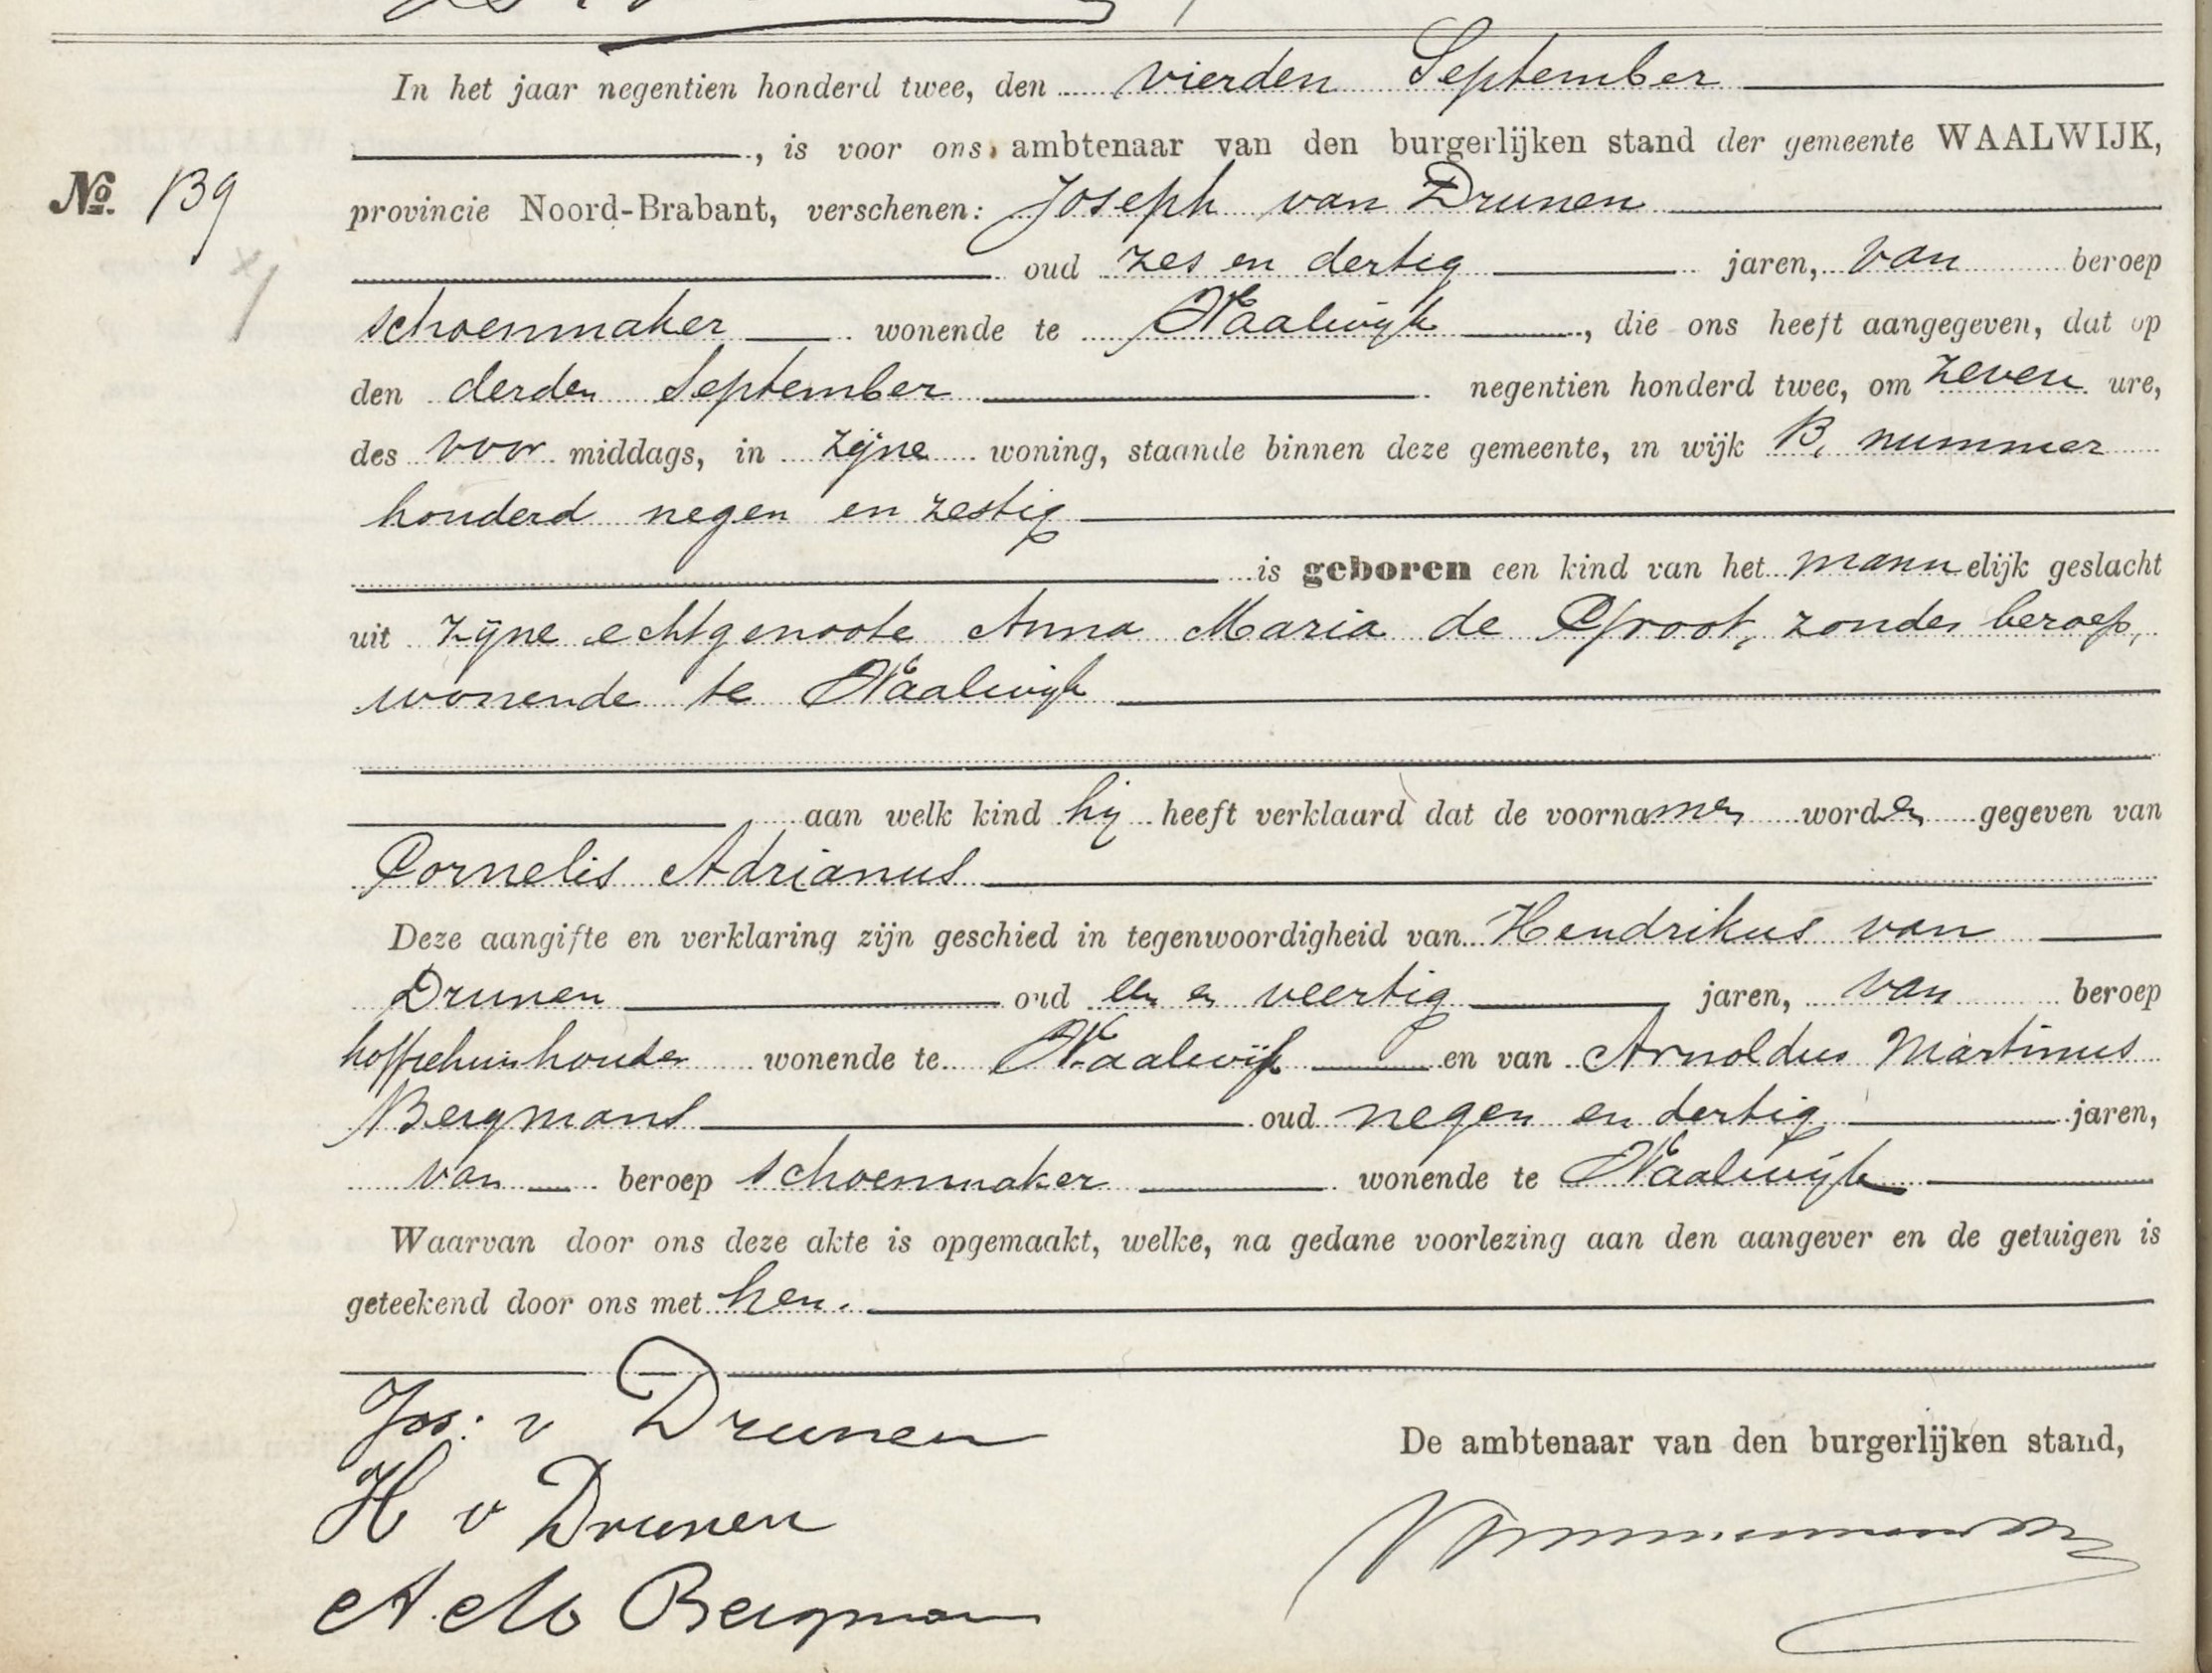 In het jaar negentien honderd twee, den vierden September
, is voor ons, ambtenaar van den burgerlijken stand der gemeente WAALWIJK,
No. 139
provincie Noord-Brabant, verschenen: Joseph van Drunen
oud zes en dertig jaren, van beroep
schoenmaker wonende te Waalwijk, die ons heeft aangegeven, dat op
den derden September negentien honderd twee, om zeven ure,
des voor middags, in zijne woning, staande binnen deze gemeente, in wijk B, nummer
honderd negen en zestig
is geboren een kind van het mannelijk geslacht
uit zijne echtgenoote Anna Maria de Groot, zonder beroep,
wonende te Waalwijk
aan welk kind hij heeft verklaard dat de voornamen worden gegeven van
Cornelis Adrianus
Deze aangifte en verklaring zijn geschied in tegenwoordigheid van Hendrikus van
Drunen oud een en veertig jaren, van beroep
koffiehuishouder wonende te Waalwijk en van Arnoldus Martinus
Bergmans oud negen en dertig jaren,
van beroep schoenmaker wonende te Waalwijk
Waarvan door ons deze akte is opgemaakt, welke, na gedane voorlezing aan den aangever en de getuigen is
geteekend door ons met hen.
Jos: v Drunen
De ambtenaar van den burgerlijken stand,
H v Drunen
A. M Bergmans